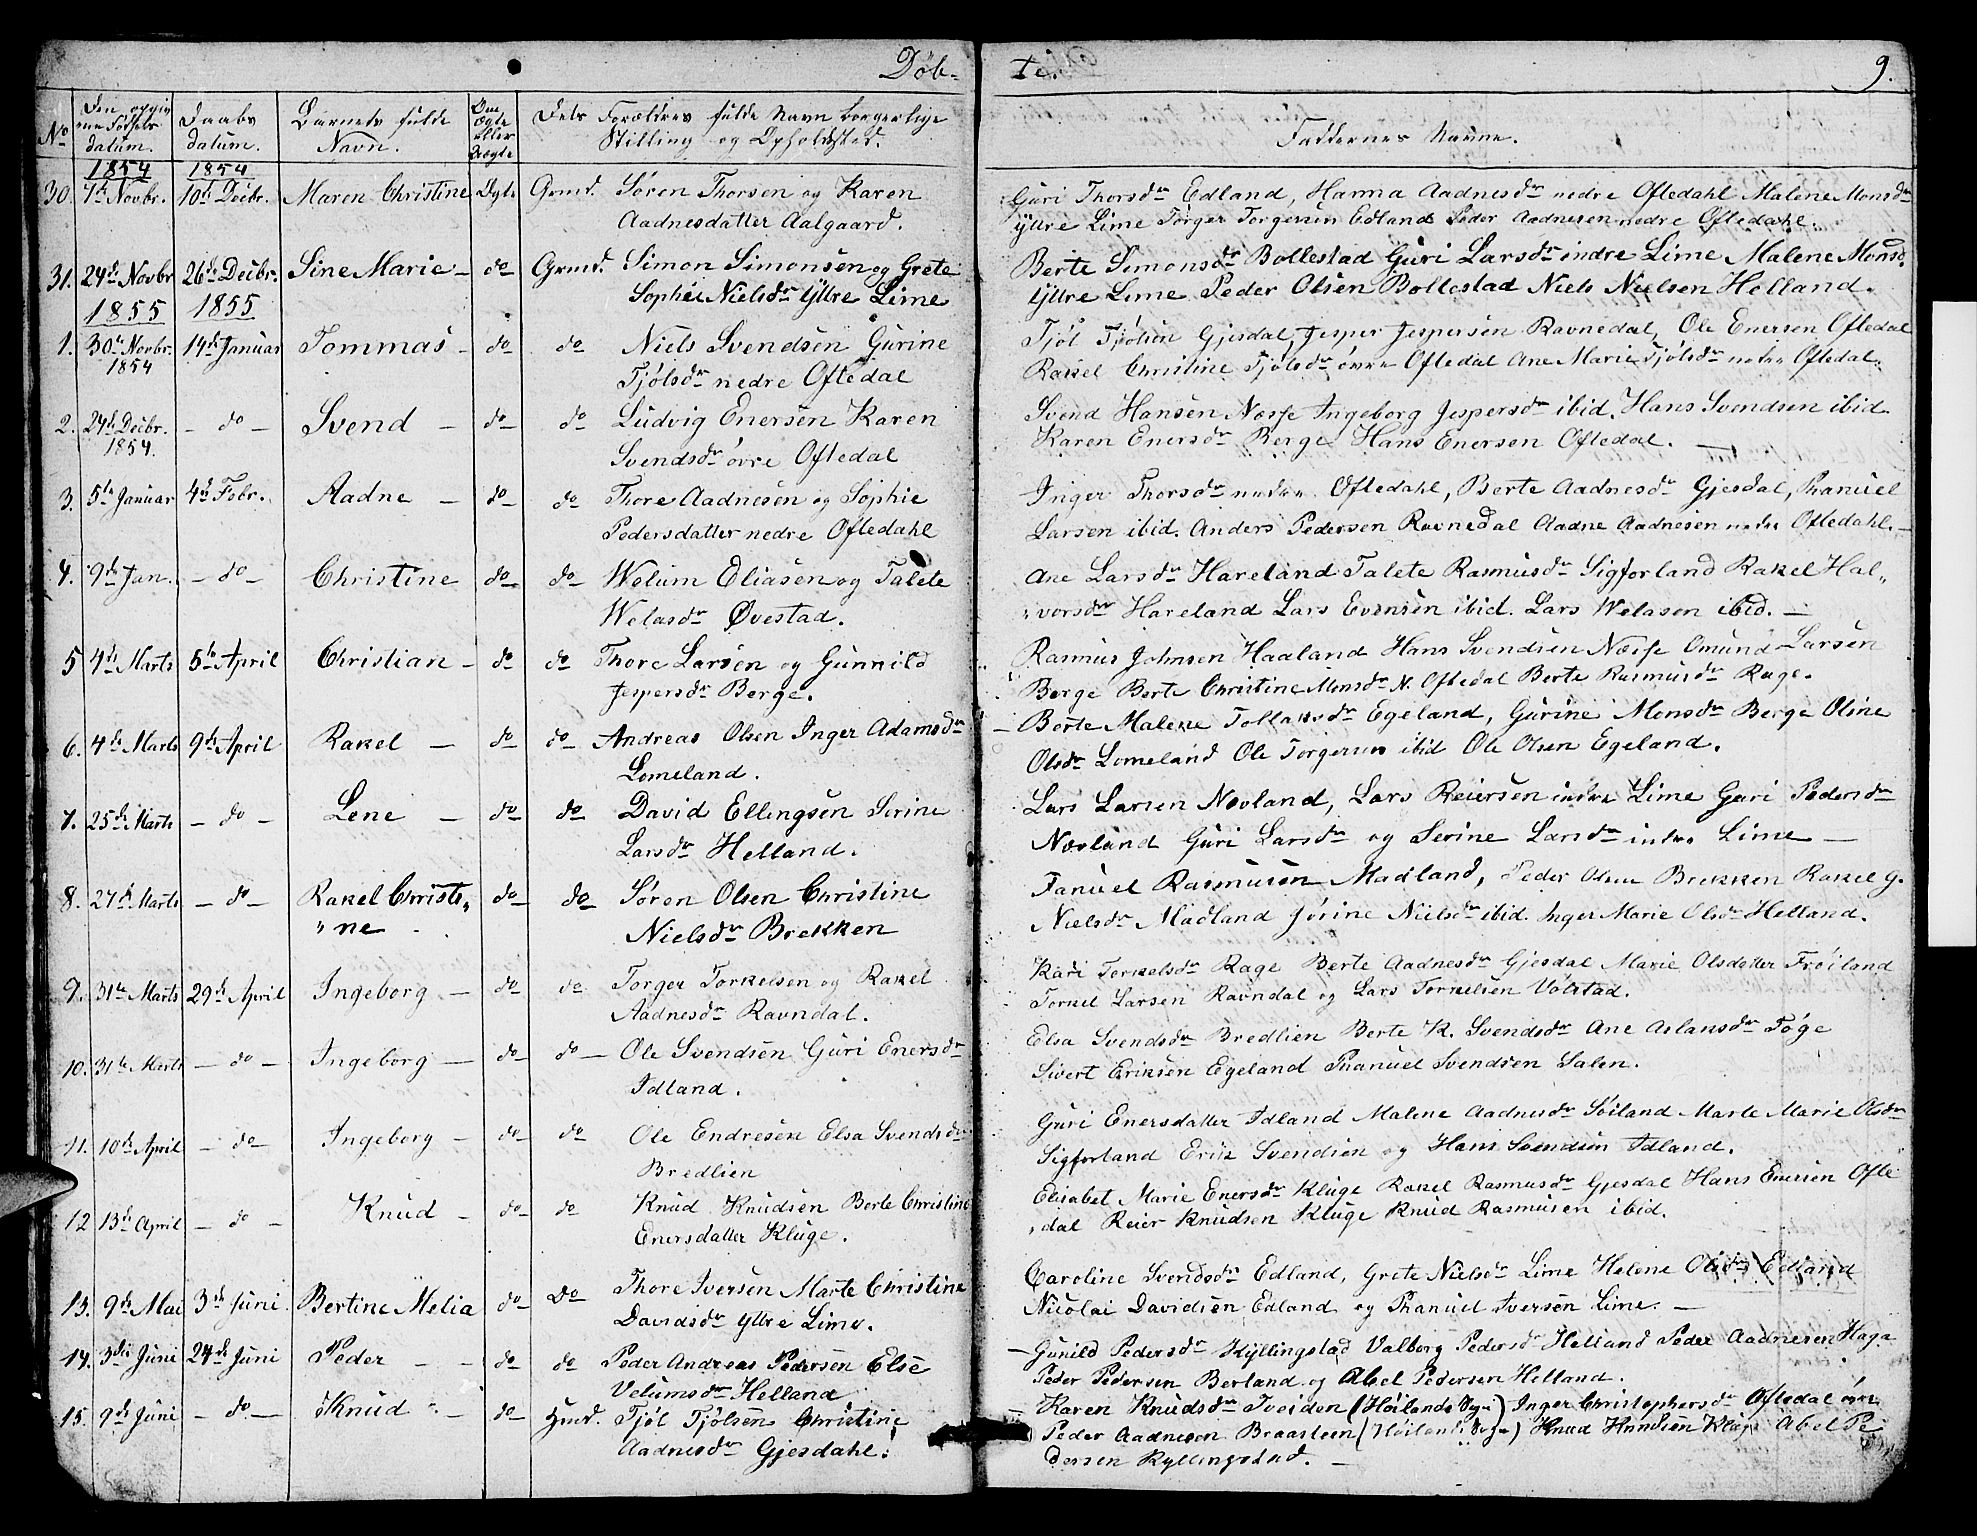 Døb- te. 9.
No
Den opgivne Fødsels datum.
Daabs datum.
Barnets fulde Navn.
Om ægte eller uægte
Dets Forældres fulde Navn borgerlige Stilling og Opholdsted.
Faddernes Navne.
1854 1854
30. 7de Novbr. 10de Decbr. Maren Christine Ægte Grmd. Søren Thorsen og Karen
Aadnesdatter Aalgaard.
Guri Thorsdr Edland, Hanna Aadnesdr nedre Oftedahl Malene Monsdr
Yttre Lime Torger Torgersen Edland Peder Aadnesen nedre Oftedahl.
31. 24de Novbr 26de Decbr. Sine Marie - do Grmd. Simon Simonsen og Grete
Sophie Nielsdr Yttre Lime
Berte Simonsdr Bollestad Guri Larsdr indre Lime Malene Monsd.
Yttre Lime Peder Olsen Bollestad Niels Nielsen Helland.
1855 1855
1. 30te Novbr. 1854 14de Januar Tommas - do do Niels Svendsen Gurine
Tjølsdr nedre Oftedal
Tjøl Tjølsen Gjesdal, Jesper Jespersen Ravnedal, Ole Enersen Oftedal
Rakel Christine Tjølsdr övre Oftedal Ane Marie Tjølsdr nedre Oftedal.
2. 24de Decbr. 1854. - do - Svend - do do Ludvig Enersen Karen
Svendsdr övre Oftedal
Svend Hansen Næsse Ingeborg Jespersdr ibid. Hans Svendsen ibid
Karen Enersdr Berge Hans Enersen Oftedal. —
3. 5te Januar 4de Febr. Aadne - do do Thore Aadnesen og Sophie
Pedersdatter nedre Oftedahl
Inger Thorsdr nedre Oftedahl, Berte Aadnesdr Gjesdal, Phanuel
Larsen ibid. Anders Pedersen Ravnedal Aadne Aadnesen nedre Oftedahl. -
4. 9de Jan. - do - Christine do do Welum Eliasen og Talete
Welasdr Øvestad.
Ane Larsdr Hareland Talete Rasmusdr Sigforland Rakel Hal„
„vorsdr Hareland Lars Evensen ibid. Lars Welasen ibid. —
5 4de Marts 5te April Christian - do do Thore Larsen og Gunnild
Jespersdr Berge.
Rasmus Johnsen Haaland Hans Svendsen Næsse Omund Larsen
Berge Berte Christine Monsdr N. Oftedal Berte Rasmusdr Rage.
6. 4de Marts 9de April Rakel - do do Andreas Olsen Inger Adamsdr
Lomeland.
- Berte Malene Tollaksdr Egeland, Gurine Monsdr Berge Oline
Olsdr Lomeland Ole Torgersen ibid Ole Olsen Egeland.
7. 25de Marts - do - Lene - do do David Ellingsen Serine
Larsdr Helland.
Lars Larsen Novland, Lars Reiersen indre Lime Guri Pedersdr
Novland Guri Larsdr og Serine Larsdr indre Lime —
8. 27de Marts - do - Rakel Christi„
„ne do do Søren Olsen Christine
Nielsdr Brekken
Fanuel Rasmusen Madland, Peder Olsen Brekken Rakel G.
Nielsdr Madland Jörine Nielsdr ibid. Inger Marie Olsdr Helland.
9. 31te Marts 29de April Ingeborg - do do Torger Torkelsen og Rakel
Aadnesdr Ravndal.
Kari Torkelsdr Rage Berte Aadnesdr Gjesdal Marie Olsdatter Fröiland
Torkel Larsen Ravndal og Lars Torkelsen Völstad.
10. 31te Marts - do - Ingeborg - do do - Ole Svendsen Guri Enersdr
Idland.
Elsa Svendsdr Bredlien Berte K. Svendsdr Ane Aslaksdr Föge
Sivert Eriksen Egeland Phanuel Svendsen Salen.
11. 10de April - do - Ingeborg - do do Ole Endresen Elsa Svendsdr
Bredlien
Guri Enersdatter Idland Malene Aadnesdr Söiland Marte Marie Olsdr
Sigforland Erik Svendsen og Hans Svendsen Idland.
12 13de April - do - Knud - do do Knud Knudsen Berte Christine
Enersdatter Kluge.
Elisabet Marie Enersdr Kluge Rakel Rasmusdr Gjesdal Hans Enersen Ofte
„dal Reier Knudsen Kluge Knud Rasmusen ibid.
13. 9de Mai 3de Juni Bertine Melia do Do Thore Iversen Marte Christine
Davidsdr Yttre Lime.
Caroline Svendsdr Edland, Grete Nielsdr Lime Helene Olsdr Edland
Nicolai Davidsen Edland og Phanuel Iversen Lime. -
14. 3die Juni 24de Juni Peder - - do do Peder Andreas Pedersen Else
Velumsdr Helland
- Gunild Pedersdr Kyllingstad Valborg Pedersdr Helland Peder Aadnesen Haga
Peder Pedersen Berland og Abel Pedersen Helland.
15. 9de Juni - do - Knud - do Hmd. Tjöl Tjölsen Christine
Aadnesdr Gjesdahl.
- Karen Knudsdr Tveiden (Höilands Sogn) Inger Christophersdr Oftedal övre
Peder Aadnesen Braasteen (Höilands Sogn) Knud Knudsen Kluge Abel Pe
dersen Kyllingstad. —